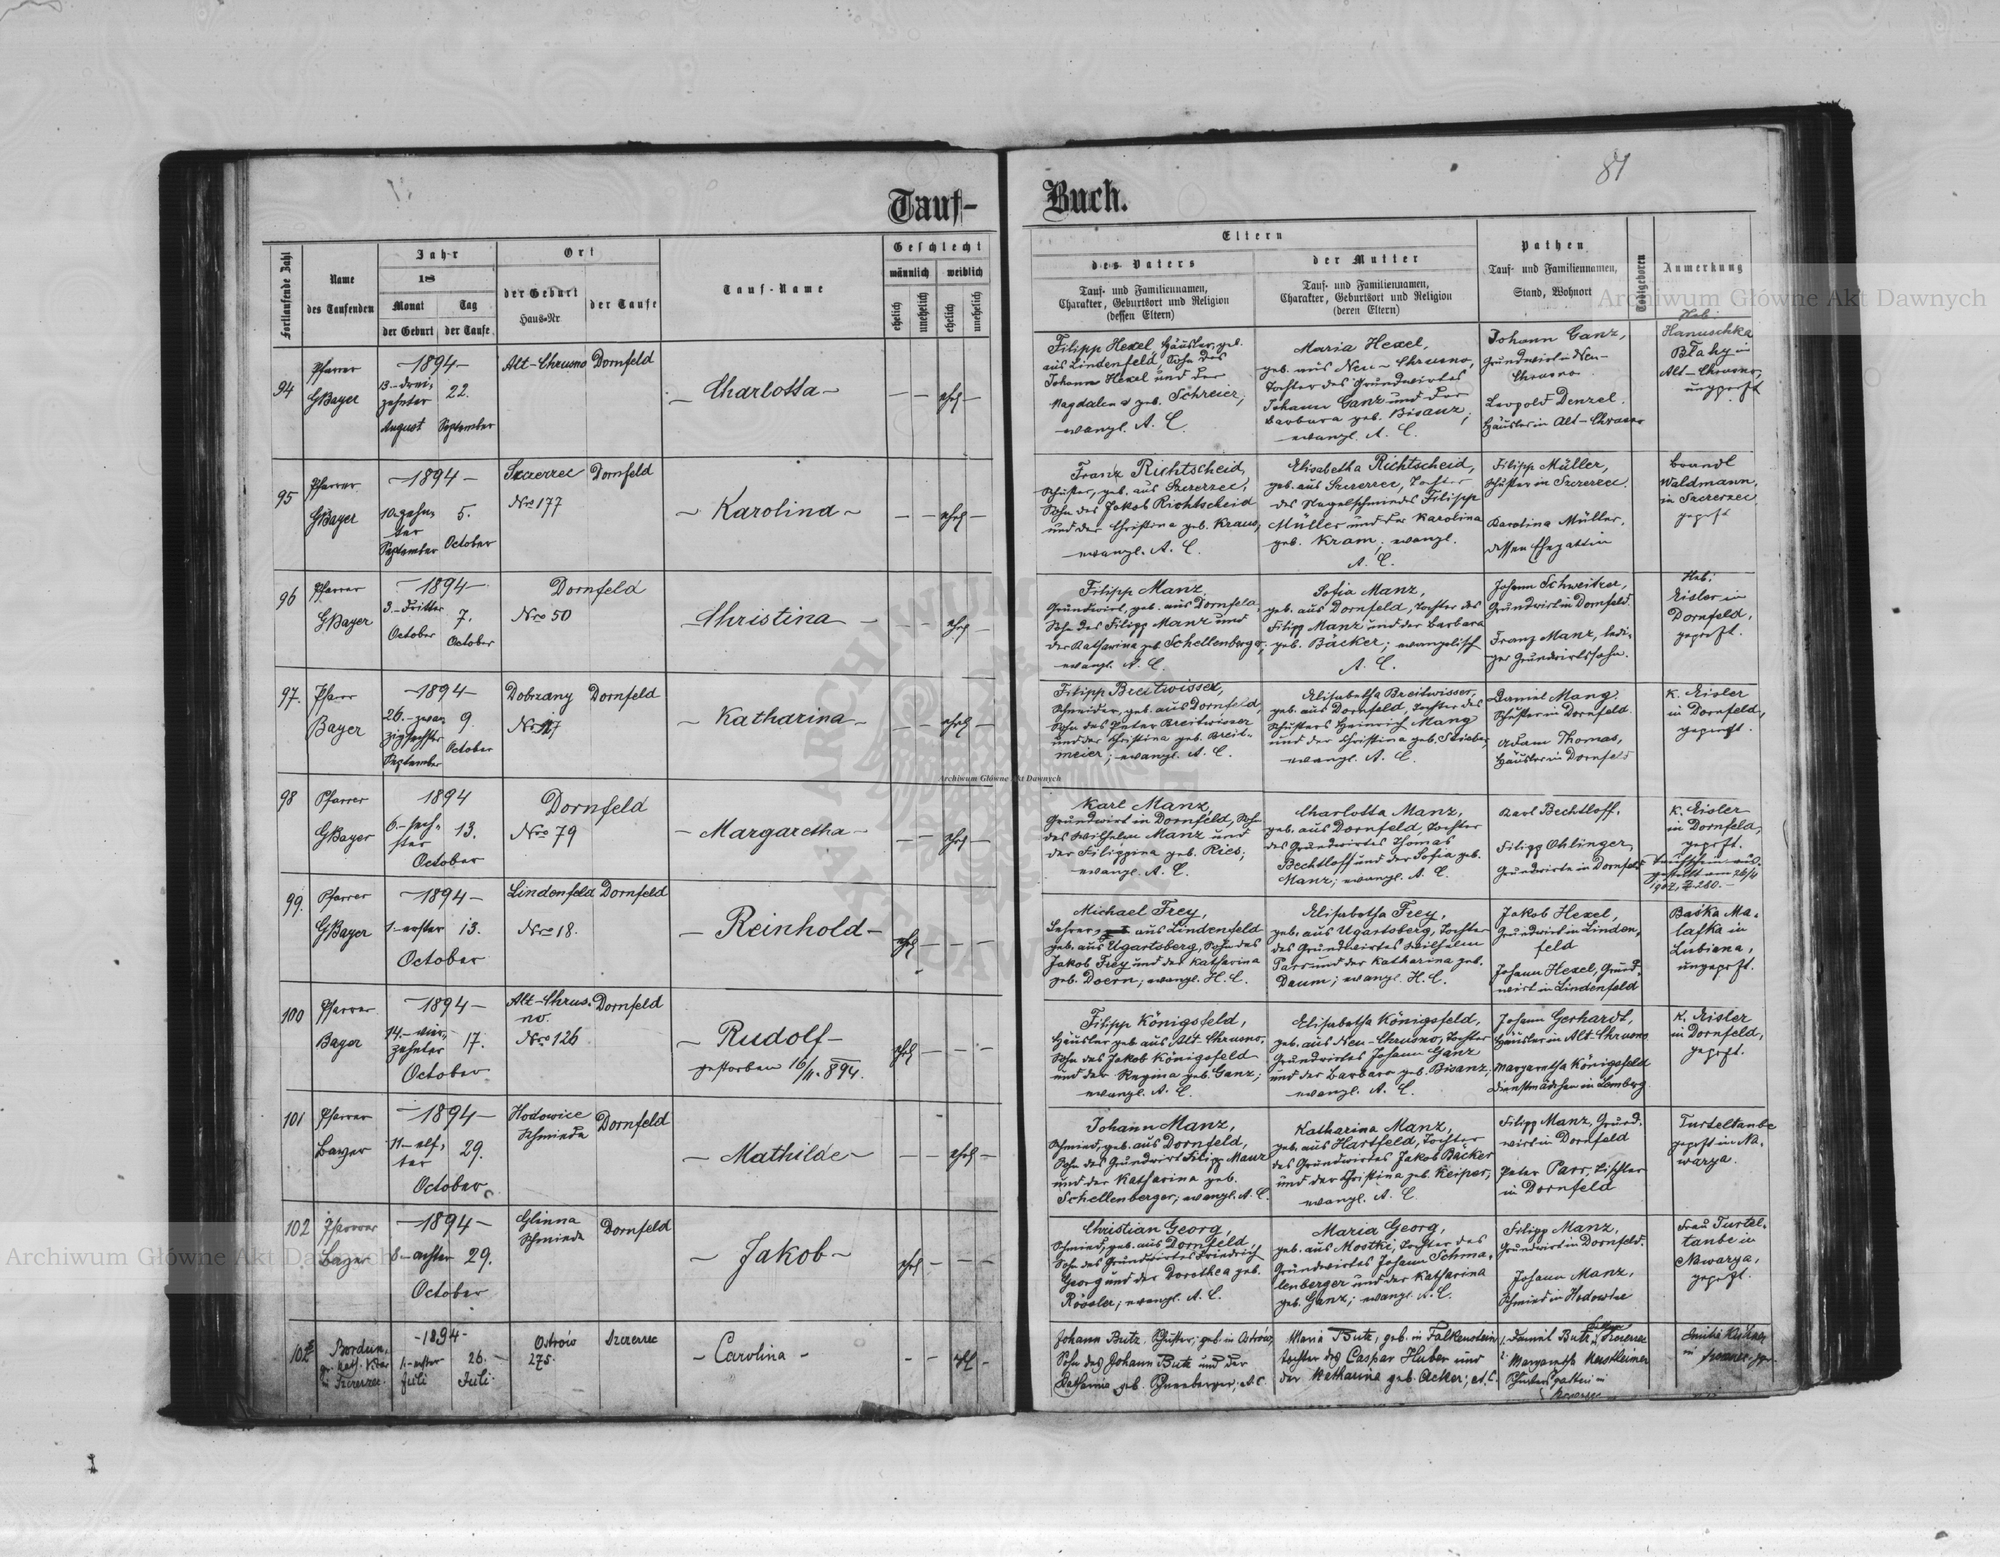 81
Tauf-Buch.
Fortlaufende Zahl
Name
des Taufenden
Jahr
18
Monat
der Geburt
Tag
der Taufe
Ort
der Geburt
Haus-Nr
der Taufe
Tauf-Name
Geschlecht
männlich
weiblich
ehelich
unehelich
ehelich
unehelich
Eltern
des Vaters
Tauf- und Familiennamen,
Charakter, Geburtsort und Religion
(dessen Eltern)
der Mutter
Tauf- und Familiennamen,
Charakter, Geburtsort und Religion
(deren Eltern)
Pathen
Tauf- und Familiennamen,
Stand, Wohnort
Todtgeboren
Anmerkung
94
Pfarrer
GBayer
-1894-
13.- drei-
zehnter
August
22.
September
Alt-Chrusno
Dornfeld
- Charlotta -
ehel
Filipp Hexel, Häusler, geb.
aus Lindenfeld, Sohn des
Johann Hexel und der
Magdalena geb. Schreier;
evangl. A. C.
Maria Hexel,
geb. aus Neu-Chrusno,
Tochter des Grundwirtes
Johann Ganz und der
Barbara geb. Bisanz;
evangl. A. C.
Johann Ganz,
Grundwirt in Neu-
Chrusno
Leopold Denzel.
Häusler in Alt-Chrusno
Heb.
Hanuschka
Błahy in
Alt-Chrusno,
ungeprft
95
Pfarrer
GBayer
-1894-
10. zehn-
ter
September
5.
October
Szczerzec
Nro 177
Dornfeld
- Karolina -
ehel
Franz Richtscheid,
Schuster, geb. aus Szczerzec,
Sohn des Jakob Richtscheid
und der Christina geb. Kraus,
evangl. A. C.
Elisabetha Richtscheid,
geb. aus Szczerzec, Tochter
des Nagelschmiedes Filipp
Müller und der Karolina
geb. Kram; evangl.
A. C.
Filipp Müller,
Schuster in Szczerzec.
Karolina Müller,
dessen Ehegattin
Brandl
Waldmann,
in Szczerzec
geprft
96
Pfarrer
GBayer
-1894-
3.- dritter
October
7.
October
Dornfeld
Nro 50
Christina -
ehel
Filipp Manz,
Grundwirt, geb. aus Dornfeld,
Sohn des Filipp Manz und
der Katharina geb. Schellenberger;
evangl. A. C.
Sofia Manz,
geb. aus Dornfeld, Tochter des
Filipp Manz und der Barbara
geb. Bäcker; evangelisch
A. C.
Johann Schweitzer,
Grundwirt in Dornfeld.
Franz Manz, ledi-
ger Grundwirtssohn.
Heb.
Eisler in
Dornfeld,
geprft.
97.
Pfarr
Bayer
-1894-
26.- zwan-
zigsechster
September
9.
October
Dobrzany
Dornfeld
- Katharina -
ehel
Filipp Breitwisser,
Schneider, geb. aus Dornfeld,
Sohn des Peter Breitwisser
und der Christina geb. Breit-
meier; evangl. A. C.
Elisabetha Breitwisser,
geb. aus Dornfeld, Tochter des
Schusters Heinrich Mang
und der Christina geb.
evangl. A. C.
Daniel Mang
Schuster in Dornfeld.
Adam Thomas,
Häusler in Dornfeld
K. Eisler
in Dornfeld,
geprft.
98
Pfarrer
GBayer
1894
6.- sech-
ster
October
13.
Dornfeld
Nro 79
- Margaretha -
ehel
Karl Manz,
Grundwirt in Dornfeld, Sohn
des Wilhelm Manz und
der Filippina geb. Ries;
evangl. A. C.
Charlotta Manz,
geb. aus Dornfeld, Tochter
des Grundwirtes Thomas
Bechtloff und der Sofia geb.
Manz; evangl. A. C.
Karl Bechtloff.
Filipp Ohlinger,
Grundwirte in Dornfeld
K. Eisler
in Dornfeld,
geprft.
Taufschein aus-
gestellt am
99.
Pfarrer
GBayer
-1894-
1.- erster
October
13.
Lindenfeld
Nro 18.
Dornfeld
- Reinhold -
ehel
Michael Frey,
Lehrer aus Lindenfeld
geb. aus Ugartsberg, Sohn des
Jakob Frey und der Katharina
geb. Doern; evangl. H. C.
Elisabetha Frey,
geb. aus Ugartsberg, Tochter
des Grundwirtes Wilhelm
Parr und der Katharina geb.
Daum; evangl. H. C.
Jakob Hexel,
Grundwirt in Linden-
feld
Johann Hexel, Grund-
wirt in Lindenfeld
Baśka Ma-
lafka in
Lubiana,
ungeprft.
100
Pfarrer
Bayer
-1894-
14.- vier-
zehnter
October
17.
Alt-Chrus-
no.
Nro 126
Dornfeld
- Rudolf -
gestorben 16/11. 894.
ehel
Filipp Königsfeld,
Häusler geb. aus Alt-Chrusno,
Sohn des Jakob Königsfeld
und der Regina geb. Ganz;
evangl. A. C.
Elisabetha Königsfeld,
geb. aus Neu-Chrusno, Tochter
Grundwirtes Johann Ganz
und der Barbara geb. Bisanz,
evangl. A. C.
Johann Gerhardt,
Häusler in Alt-Chrusno
Margaretha Königsfeld
Dienstmädchen in Lemberg.
K. Eisler
in Dornfeld,
geprft.
101
Pfarrer
Bayer
-1894-
11.- elf-
ter
October
29.
Hodowice
Schmiede
Dornfeld
- Mathilde -
ehel
Johann Manz,
Schmied, geb. aus Dornfeld,
Sohn des Grundwirt Filipp Manz
und der Katharina geb.
Schellenberger; evangl. A. C.
Katharina Manz,
geb. aus Hartfeld, Tochter
des Grundwirtes Jakob Bäcker
und der Christina geb. Keiper;
evangl. A. C.
Filipp Manz, Grund-
wirt in Dornfeld
Peter Parr, Tischler
in Dornfeld
Turteltaube
geprft in Na-
warya.
102
Pfarrer
Bayer
-1894-
8.- achter
October
29.
Glinna
Schmiede
Dornfeld
- Jakob -
ehel
Christian Georg,
Schmied, geb. aus Dornfeld,
Sohn des Grundwirtes Friedrich
Georg und der Dorothea geb.
Rössler; evangl. A. C.
Maria Georg,
geb. aus Mostki, Tochter des
Grundwirtes Johann Schma-
lenberger und der Katharina
geb. Ganz; evangl. A. C.
Filipp Manz,
Grundwirt in Dornfeld.
Johann Manz,
Schmied in Hodowice
Frau Turtel-
taube in
Nawarya,
geprft.
Bordun,
in Szczerzec.
-1894-
1.- erster
Juli
26.
Juli
Ostrów
275.
Szczerzec
- Carolina -
ehel
Johann Butz, Schuster, geb. in Ostrów,
Sohn des Johann Butz und der
Katharina geb. Schneeberger; A. C.
Maria Butz, geb. in Falkenstein
Tochter des Caspar Huber und
der Katharina geb. Acker; A. C.
1. Daniel Butz,
2. Margaretha
Schusters gattin in
Szczerzec
Archiwum Główne Akt Dawnych
Archiwum Główne Akt Dawnych
Archiwum Główne Akt Dawnych